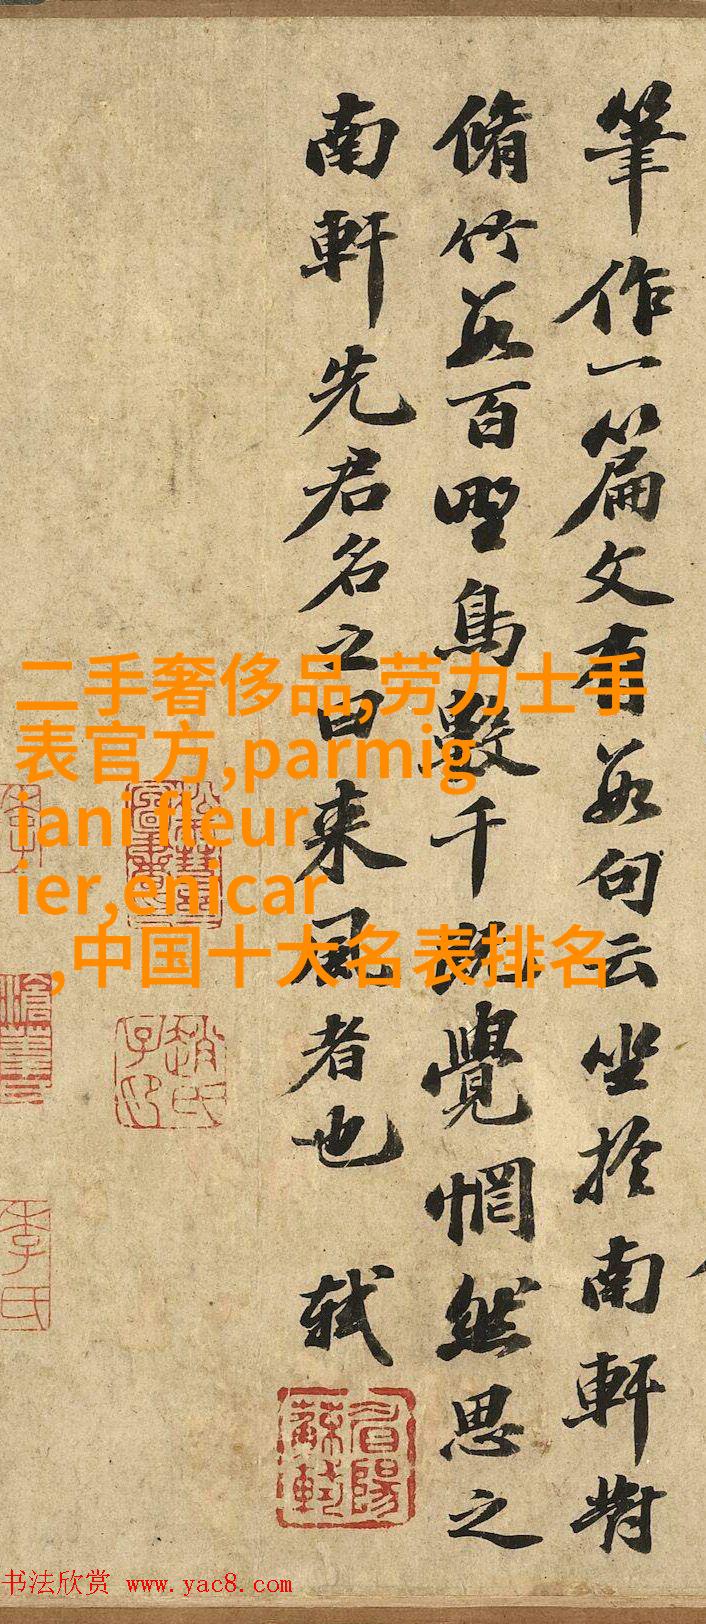 筆作一篇文有數句云坐於南軒對
脩竹數百野鳥數千既覺惘然思之
南軒先君名之曰来風者也
軾
眉陽
蘇軾
趙氏
子印
李氏
二手奢侈品,劳力士手
表官方,parmig
iani fleur
ier,enicar
,中国十大名表排名
书法欣赏 www.yac8.com